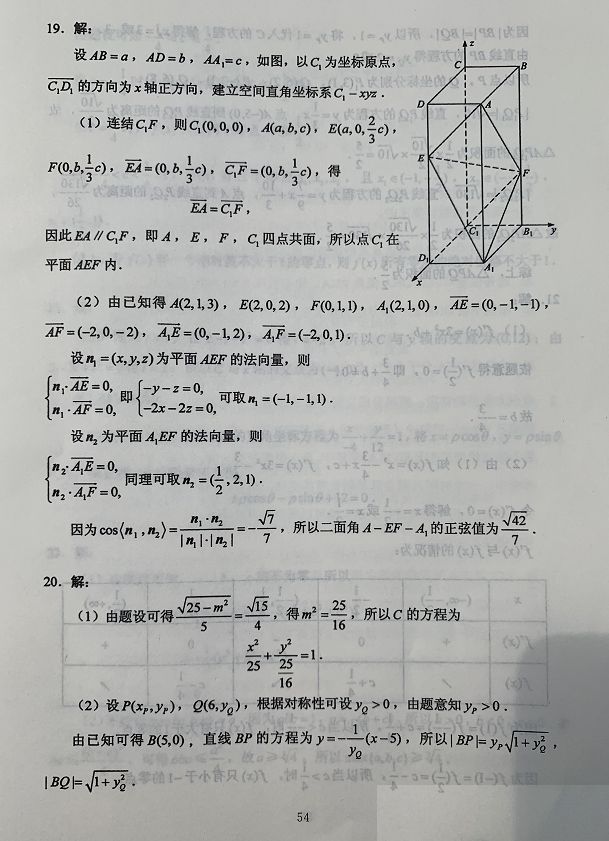 19．解：
设 AB = a，AD = b，AA₁ = c，如图，以 C₁ 为坐标原点，
$\overrightarrow{C_1D_1}$ 的方向为 x 轴正方向，建立空间直角坐标系 C₁ − xyz．
（1）连结 C₁F，则 C₁(0,0,0)，A(a,b,c)，E(a,0,$\frac{2}{3}$c)，
F(0,b,$\frac{1}{3}$c)，$\overrightarrow{EA}$ = (0,b,$\frac{1}{3}$c)，$\overrightarrow{C_1F}$ = (0,b,$\frac{1}{3}$c)，得
$\overrightarrow{EA}$ = $\overrightarrow{C_1F}$，
因此 EA // C₁F，即 A，E，F，C₁ 四点共面，所以点 C₁ 在
平面 AEF 内．
z
C
B
D
A
E
F
C₁
B₁
y
D₁
A₁
x
（2）由已知得 A(2,1,3)，E(2,0,2)，F(0,1,1)，A₁(2,1,0)，$\overrightarrow{AE}$ = (0,−1,−1)，
$\overrightarrow{AF}$ = (−2,0,−2)，$\overrightarrow{A_1E}$ = (0,−1,2)，$\overrightarrow{A_1F}$ = (−2,0,1)．
设 n₁ = (x,y,z) 为平面 AEF 的法向量，则
$\begin{cases} n_1\cdot\overrightarrow{AE}=0, \\ n_1\cdot\overrightarrow{AF}=0, \end{cases}$ 即 $\begin{cases} -y-z=0, \\ -2x-2z=0, \end{cases}$ 可取 n₁ = (−1,−1,1)．
设 n₂ 为平面 A₁EF 的法向量，则
$\begin{cases} n_2\cdot\overrightarrow{A_1E}=0, \\ n_2\cdot\overrightarrow{A_1F}=0, \end{cases}$ 同理可取 n₂ = ($\frac{1}{2}$,2,1)．
因为 cos⟨n₁,n₂⟩ = $\frac{n_1\cdot n_2}{|n_1|\cdot|n_2|}$ = −$\frac{\sqrt{7}}{7}$，所以二面角 A − EF − A₁ 的正弦值为 $\frac{\sqrt{42}}{7}$．
20．解：
（1）由题设可得 $\frac{\sqrt{25-m^2}}{5}=\frac{\sqrt{15}}{4}$，得 m² = $\frac{25}{16}$，所以 C 的方程为
$\frac{x^2}{25}+\frac{y^2}{\frac{25}{16}}=1$．
（2）设 P(x_P, y_P)，Q(6, y_Q)，根据对称性可设 y_Q > 0，由题意知 y_P > 0．
由已知可得 B(5,0)，直线 BP 的方程为 y = −$\frac{1}{y_Q}$(x−5)，所以 |BP| = y_P$\sqrt{1+y_Q^2}$，
|BQ| = $\sqrt{1+y_Q^2}$．
54